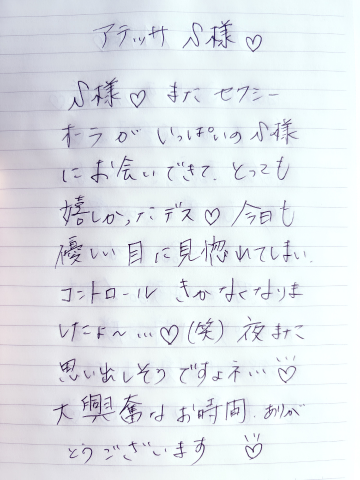 アテッサ S様♡
S様♡ また セクシー
オーラが いっぱいの S様
に お会いできて、とっても
嬉しかったデス♡ 今日も
優しい目に見惚れてしまい、
コントロール きかなくなりま
したよ〜…♡(笑) 夜また
思い出しそうですよネ…♡
大興奮なお時間、ありが
とうございます ♡